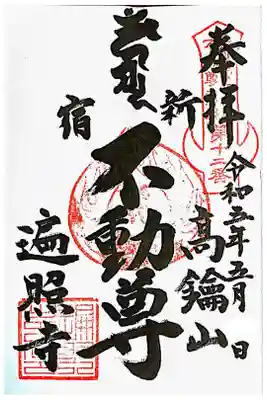 奉拝
第十二番
令和三年五月 日
高鑰山
新宿
不動尊
遍照寺